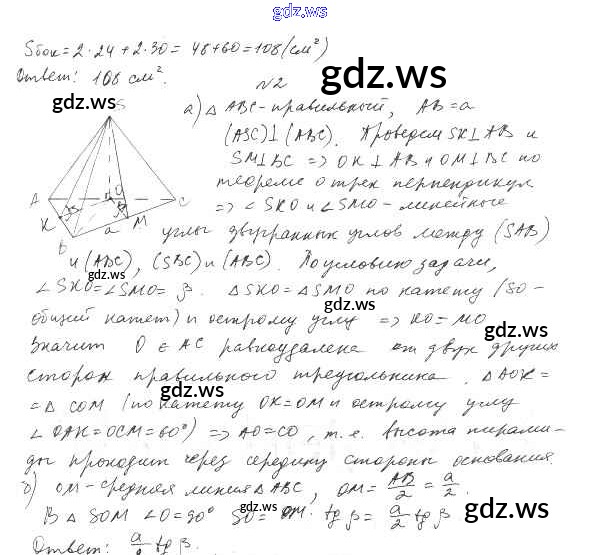 gdz.ws
Sбок = 2·24 + 2·30 = 48+60 = 108 (см²)
Ответ: 108 см².
gdz.ws
N2
gdz.ws
а) △ ABC - правильный, AB = a
(ASC)⊥(ABC). Проведем SK⊥AB и
SM⊥BC => OK⊥AB и OM⊥BC по
теореме о трех перпендикул
=> ∠SKO и ∠SMO - линейные
S
A
O
C
K
β
β
M
B
a
углы двугранных углов между (SAB)
и (ABC), (SBC) и (ABC). По условию задачи,
gdz.ws
∠SKO = ∠SMO = β. △SKO = △SMO по катету (SO -
общий катет) и острому углу => KO = MO
gdz.ws
Значит O ∈ AC равноудалена от двух других
сторон правильного треугольника. △AOK =
gdz.ws
= △ COM (по катету OK = OM и острому углу
∠OAK = OCM = 60°) => AO = CO, т.е. высота пирами-
ды проходит через середину стороны основания.
б) OM - средняя линия △ABC, OM = AB/2 = a/2.
gdz.ws
В △ SOM ∠O = 90° SO = OM · tg β = a/2 tg β
Ответ: a/2 tg β.
gdz.ws